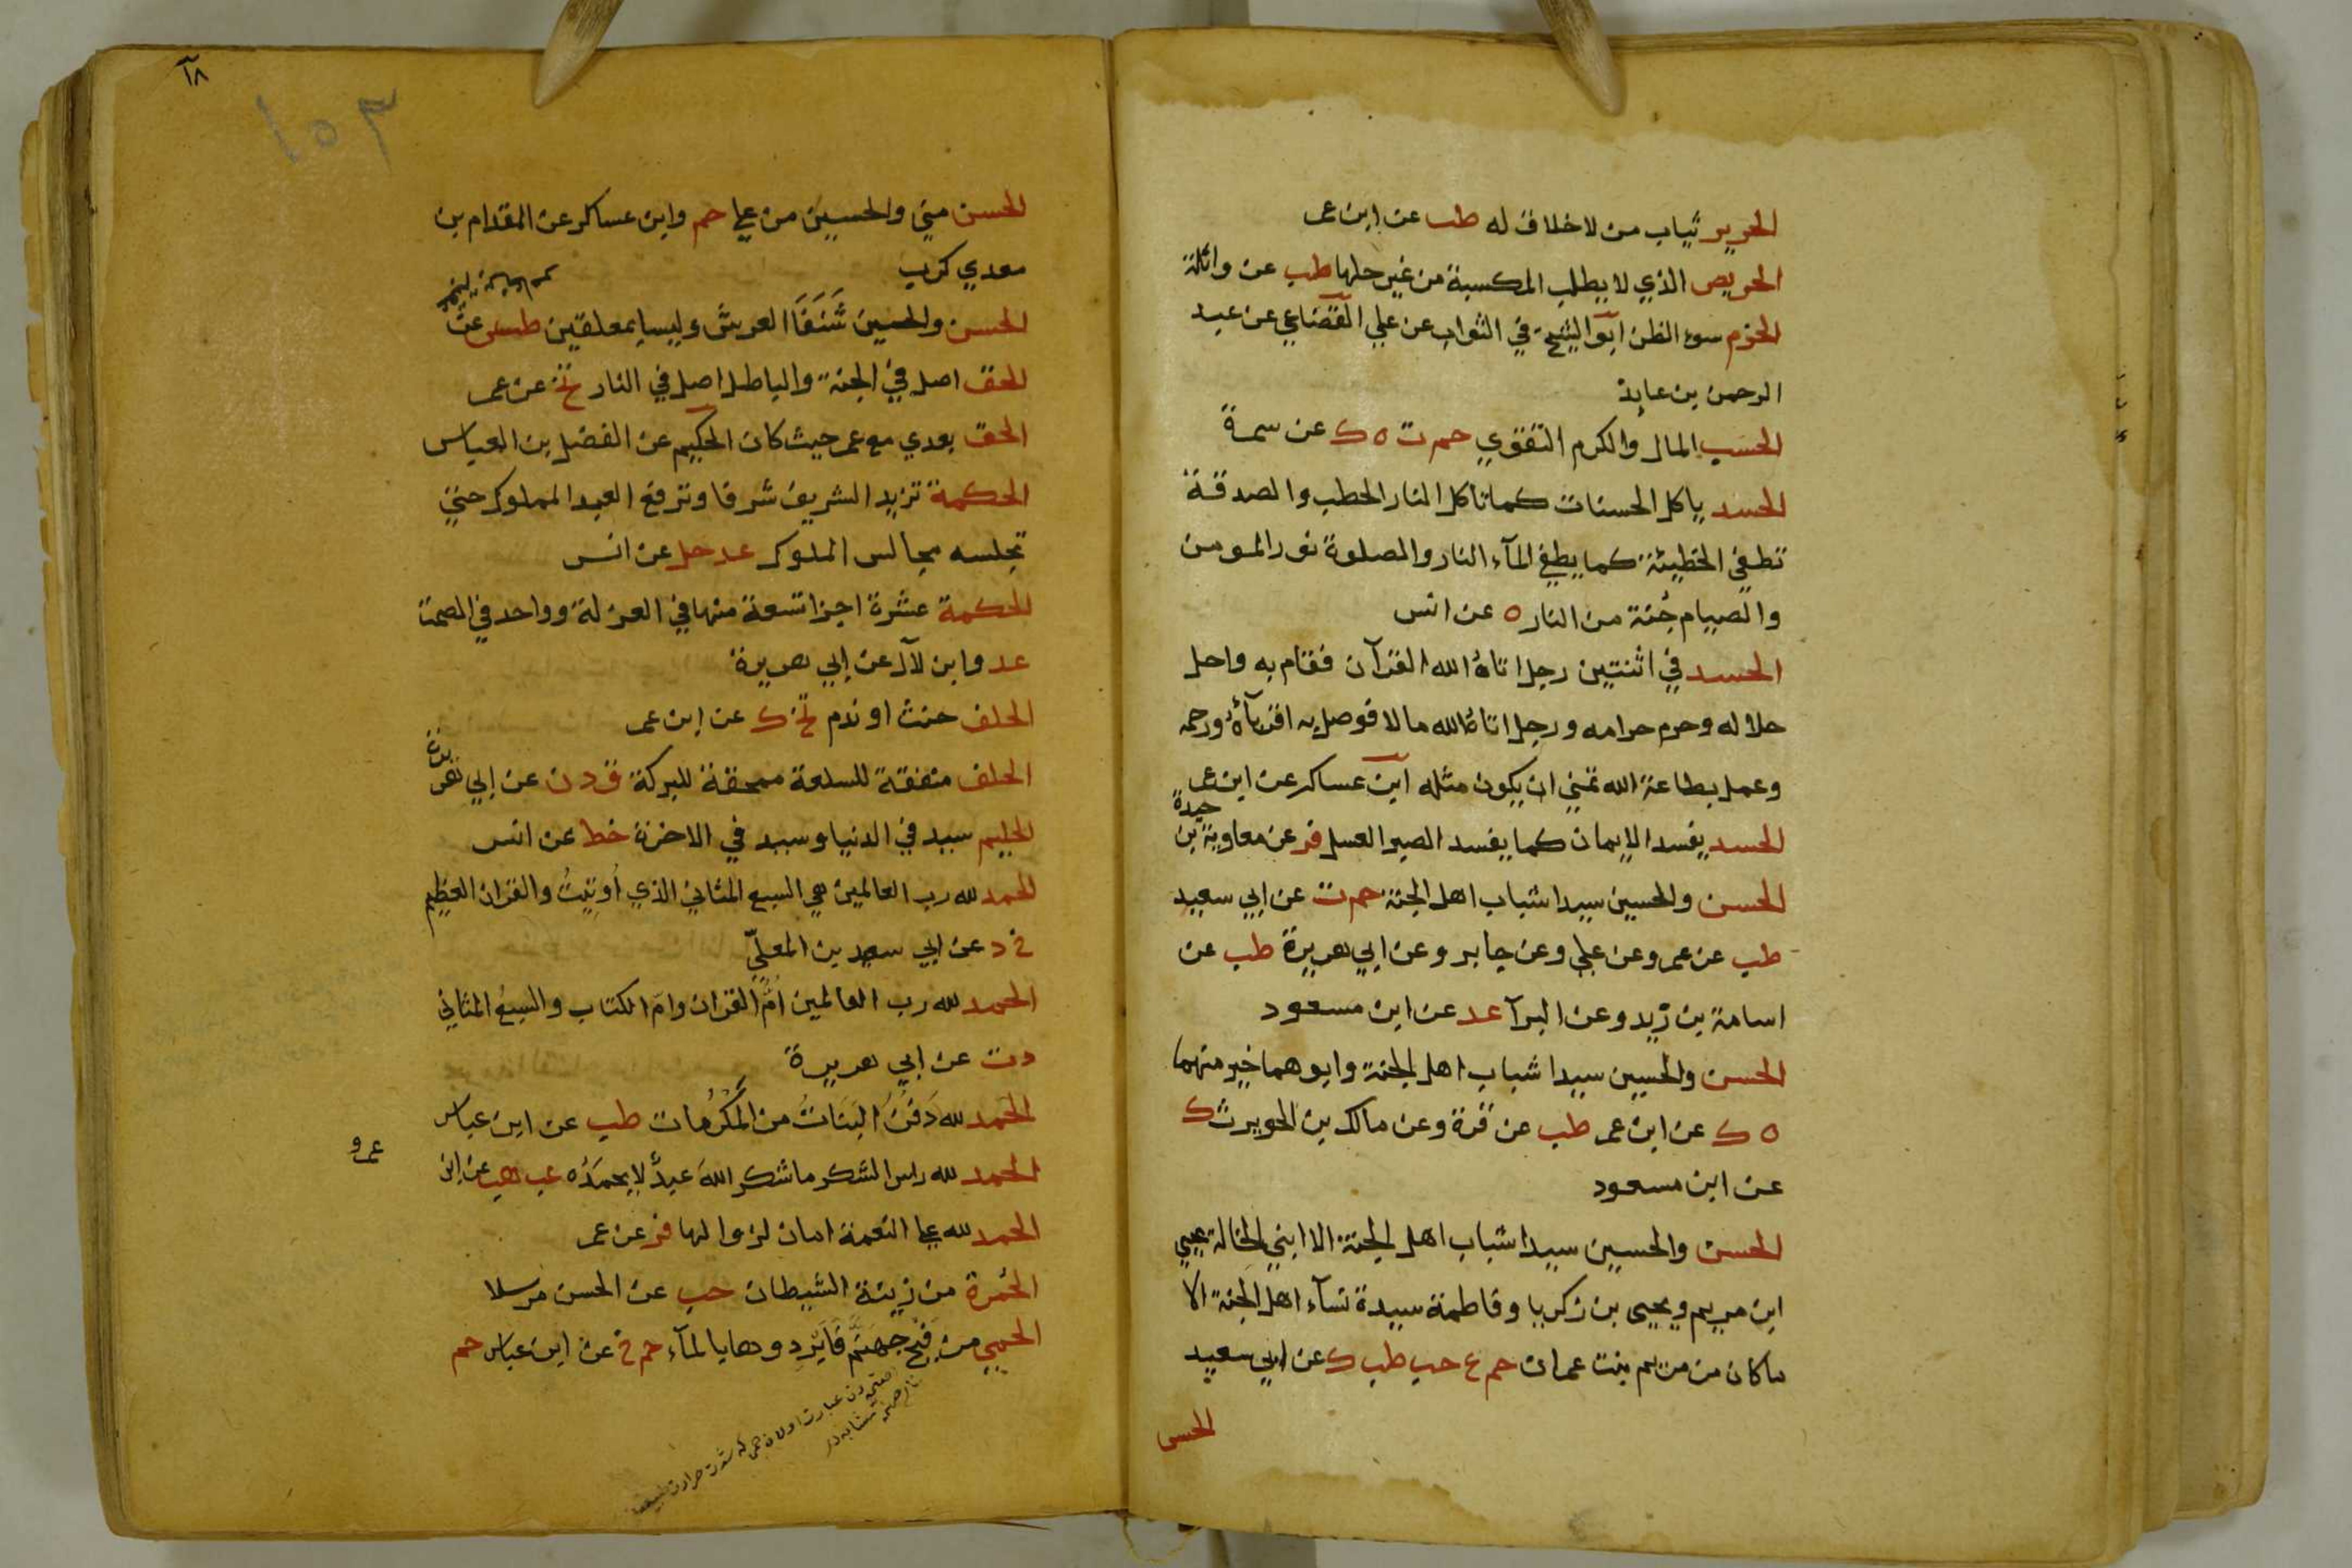 الحرير ثياب من لا خلاق له طب عن ابن عمر
الحريص الذي لا يطلب المكسبة من غير حلها طب عن واثلة
الحزم سوء الظن ابو الشيخ في الثواب عن علي القضاعي عن عبد
الرحمن بن عايذ
الحسب المال والكرم التقوي حم ت ه ك عن سمرة
الحسد ياكل الحسنات كما تأكل النار الحطب والصدقة
تطفي الخطيئة كما يطفي المآء النار والصلوة نور المومن
والصيام جُنة من النار ه عن انس
الحسد في اثنتين رجل اتاهُ الله القرآن فقام به واحل
حلاله وحرم حرامه ورجل اتاهُ الله مالا فوصل به اقربآءهُ ورحمه
وعمل بطاعة الله تمني ان يكون مثله ابن عساكر عن ابن عمر
الحسد يفسد الايمان كما يفسد الصبر العسل فر عن معاوية بن
حيدة
الحسن والحسين سيدا شباب اهل الجنة حم ت عن ابي سعيد
طب عن عمر وعن علي وعن جابر وعن ابي هريرة طب عن
اسامة بن زيد وعن البرآ عد عن ابن مسعود
الحسن والحسين سيدا شباب اهل الجنة وابوهما خير منهما
ه ك عن ابن عمر طب عن قرة وعن مالك بن الحويرث ك
عن ابن مسعود
الحسن والحسين سيدا شباب اهل الجنة الا ابني الخالة عيسي
ابن مريم ويحيى بن زكريا وفاطمة سيدة نسآء اهل الجنة الا
ما كان من مريم بنت عمران حم ع حب طب ك عن ابي سعيد
الحسن
١٨
١٥٣
الحسن مني والحسين من علي حم وابن عساكر عن المقدام بن
معدي كرب
الحسن والحسين شَنَفَا العرش وليسا بمعلقين طس عن
الحق اصل في الجنة والباطل اصل في النار تخ عن عمر
الحق بعدي مع عمر حيث كان الحكيم عن الفضل بن العباس
الحكمة تزيد الشريف شرفا وترفع العبد المملوك حتي
تجلسه مجالس الملوك عد حل عن انس
الحكمة عشرة اجزا تسعة منها في العزلة وواحد في الصمت
عد وابن لآل عن ابي هريرة
الحلف حنث او ندم تخ ك عن ابن عمر
الحلف منفقة للسلعة ممحقة للبركة ق د ن عن ابي هريرة
الحليم سيد في الدنيا وسيد في الاخرة خط عن انس
الحمد لله رب العالمين هي السبع المثاني الذي أوتيتُ والقران العظيم
خ د عن ابي سعيد بن المعلّي
الحمد لله رب العالمين امُّ القران وام الكتاب والسبعُ المثاني
د ت عن ابي هريرة
الحمد لله دَفنُ البَنَاتُ من المَكرُمات طب عن ابن عباس
الحمد لله راس الشكر ما شكر اللهَ عبدٌ لا يحمَدُه عب هب عن ابن
عمرو
الحمد لله علي النعمة امان لزوالها فر عن عمر
الحُمرة من زينة الشيطان عب عن الحسن مرسلا
الحمي من فيح جهنم فابردوها بالمآء حم خ عن ابن عباس حم